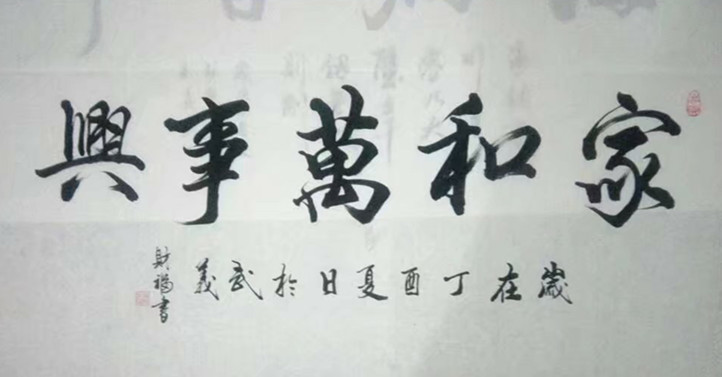 家和萬事興
歲在丁酉夏日於武義
財福書